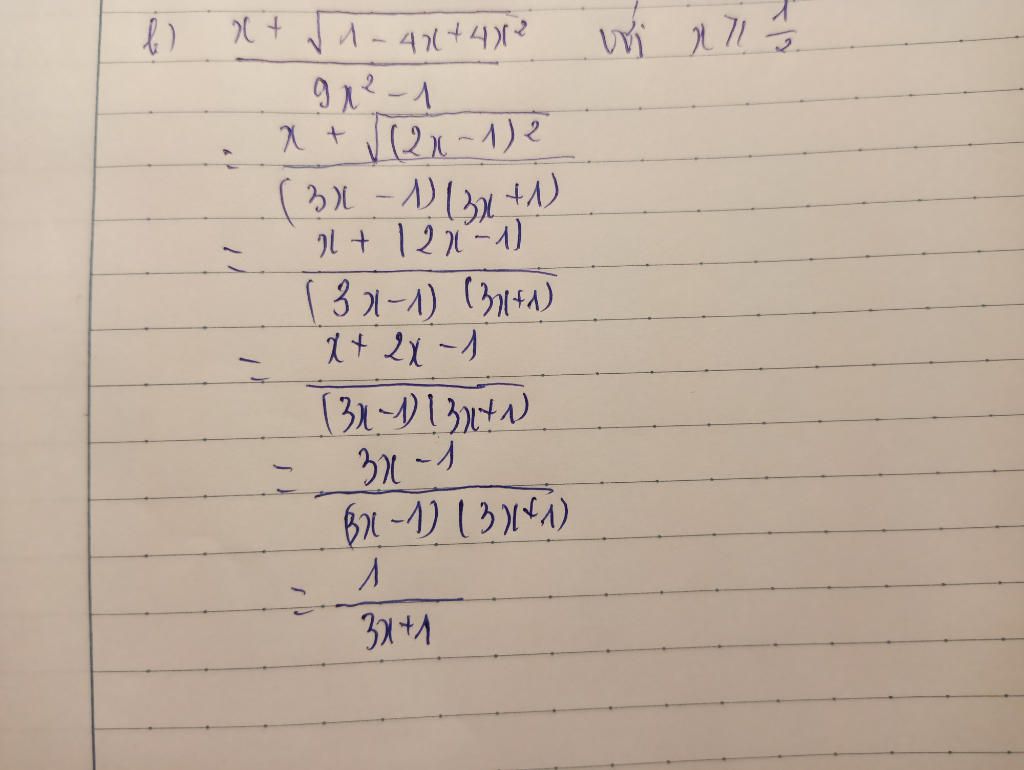 b) x + √(1 - 4x + 4x²) / 9x² - 1 với x ≥ 1/2
= x + √((2x - 1)²) / (3x - 1)(3x + 1)
= x + |2x - 1| / (3x - 1) (3x + 1)
= x + 2x - 1 / (3x - 1)(3x + 1)
= 3x - 1 / (3x - 1) (3x + 1)
= 1 / 3x + 1